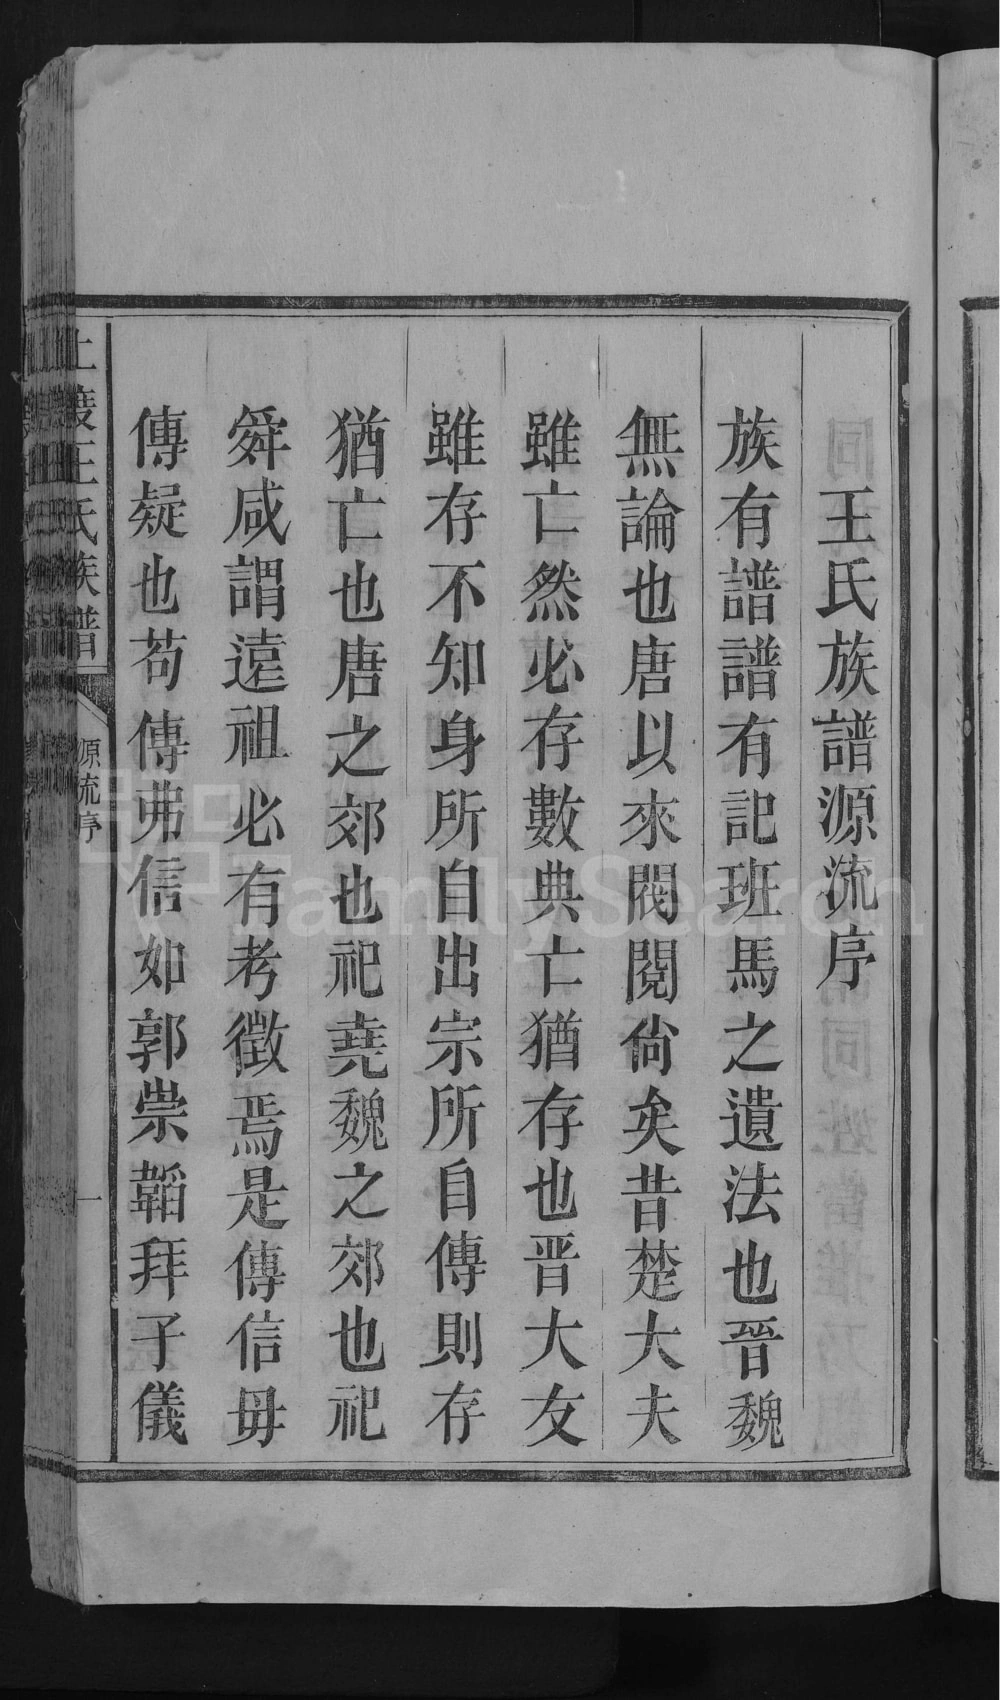 王氏族譜源流序
族有譜譜有記班馬之遺法也晉魏
無論也唐以來閥閱尙矣昔楚大夫
雖亡然必存數典亡猶存也晋大友
雖存不知身所自出宗所自傳則存
猶亡也唐之郊也祀堯魏之郊也祀
舜咸謂遠祖必有考徵焉是傳信毋
傳疑也苟傳弗信如郭崇韜拜子儀
上渡王氏族譜
源流序
一
FamilySearch